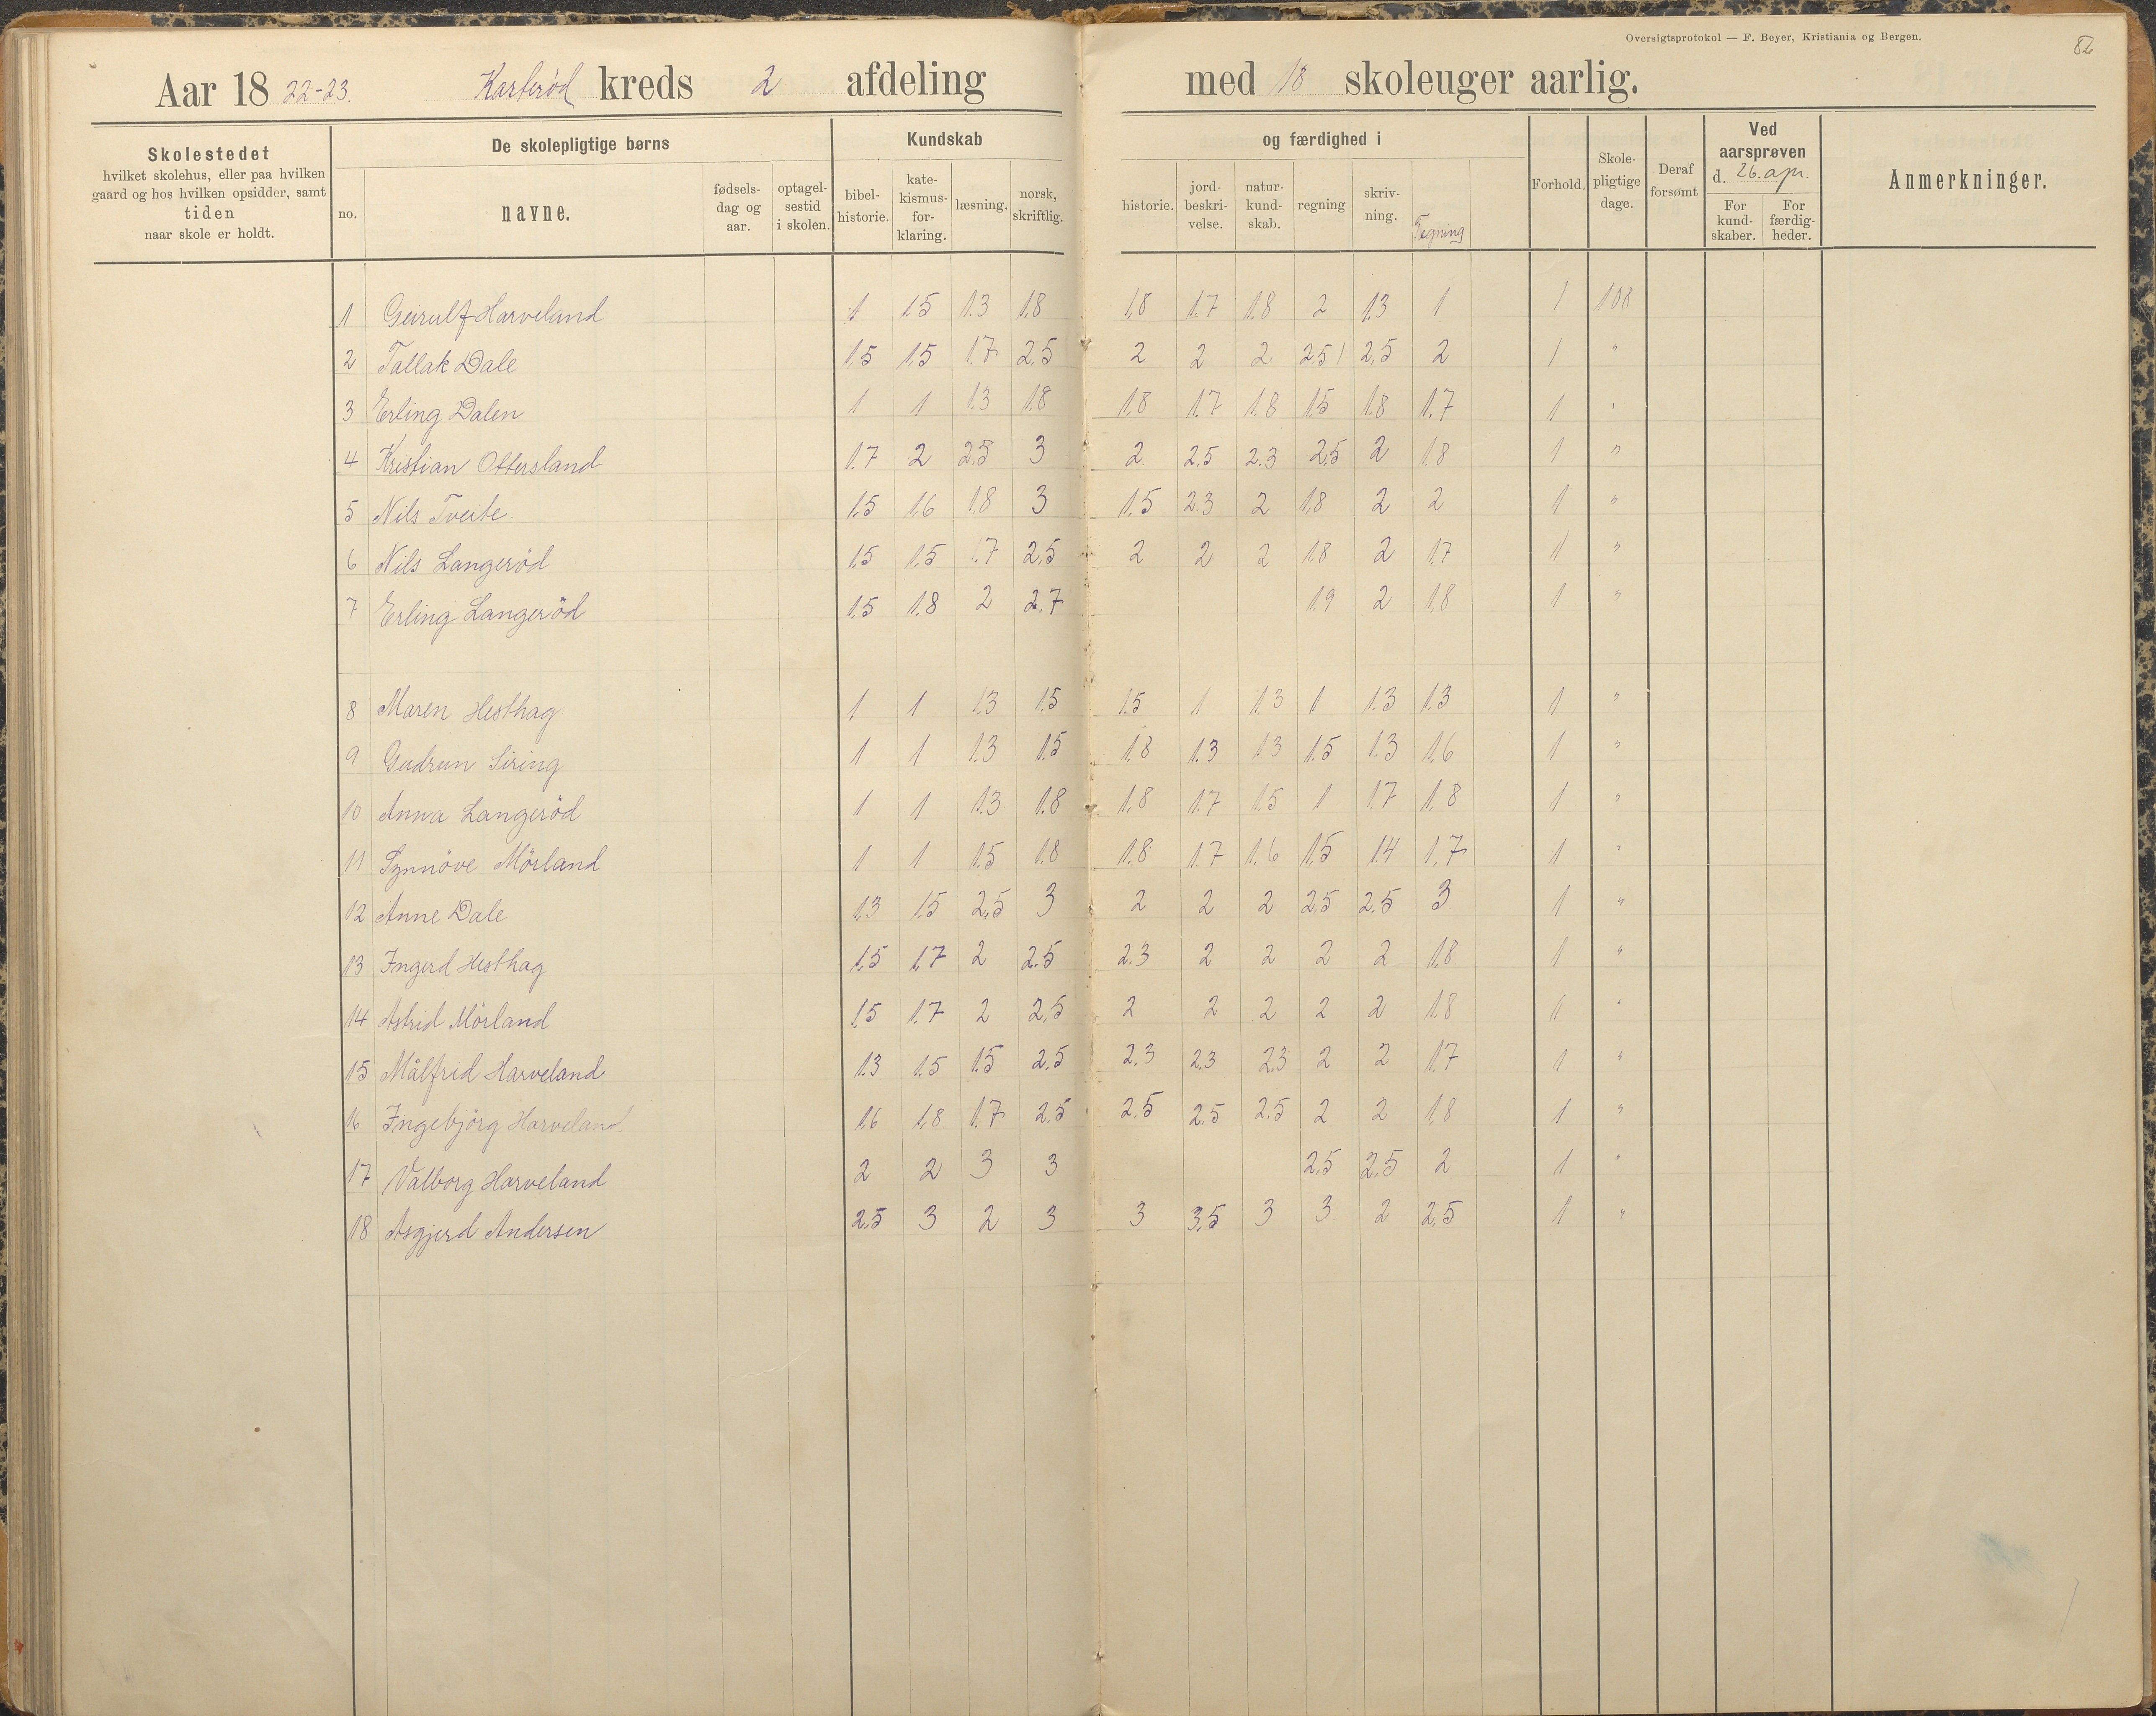 Oversigtsprotokol — F. Beyer, Kristiania og Bergen.
82
Aar 18 22-23. Karterød kreds 2 afdeling med 18 skoleuger aarlig.
Skolestedet
hvilket skolehus, eller paa hvilken
gaard og hos hvilken opsidder, samt
tiden
naar skole er holdt.
De skolepligtige børns
no.
navne.
fødsels-
dag og
aar.
optagel-
sestid
i skolen.
Kundskab
bibel-
historie.
kate-
kismus-
for-
klaring.
læsning.
norsk,
skriftlig.
og færdighed i
historie.
jord-
beskri-
velse.
natur-
kund-
skab.
regning
skriv-
ning.
Tegning
Forhold.
Skole-
pligtige
dage.
Deraf
forsømt
Ved
aarsprøven
d. 26. apr.
For
kund-
skaber.
For
færdig-
heder.
Anmerkninger.
1 Geirulf Harveland 1 1.5 1.3 1.8 1.8 1.7 1.8 2 1.3 1 1 108
2 Tallak Dale 1.5 1.5 1.7 2.5 2 2 2 2.5 2.5 2 1 "
3 Erling Dalen 1 1 1.3 1.8 1.8 1.7 1.8 1.5 1.8 1.7 1 "
4 Kristian Ottersland 1.7 2 2.5 3 2 2.5 2.3 2.5 2 1.8 1 "
5 Nils Tveite. 1.5 1.6 1.8 3 1.5 2.3 2 1.8 2 2 1 "
6 Nils Langeröd 1.5 1.5 1.7 2.5 2 2 2 1.8 2 1.7 1 "
7 Erling Langeröd 1.5 1.8 2 2.7 1.9 2 1.8 1 "
8 Maren Hesthag 1 1 1.3 1.5 1.5 1 1.3 1 1.3 1.3 1 "
9 Gudrun Siring 1 1 1.3 1.5 1.8 1.3 1.3 1.5 1.3 1.6 1 "
10 Anna Langeröd 1 1 1.3 1.8 1.8 1.7 1.5 1 1.7 1.8 1 "
11 Synnöve Mörland 1 1 1.5 1.8 1.8 1.7 1.6 1.5 1.4 1.7 1 "
12 Anne Dale 1.3 1.5 2.5 3 2 2 2 2.5 2.5 3 1 "
13 Ingerd Hesthag 1.5 1.7 2 2.5 2.3 2 2 2 2 1.8 1 "
14 Astrid Mörland 1.5 1.7 2 2.5 2 2 2 2 2 1.8 1 "
15 Målfrid Harveland 1.3 1.5 1.5 2.5 2.3 2.3 2.3 2 2 1.7 1 "
16 Ingebjörg Harveland. 1.6 1.8 1.7 2.5 2.5 2.5 2.5 2 2 1.8 1 "
17 Valborg Harveland 2 2 3 3 2.5 2.5 2 1 "
18 Asgjerd Andersen 2.5 3 2 3 3 3.5 3 3 2 2.5 1 "